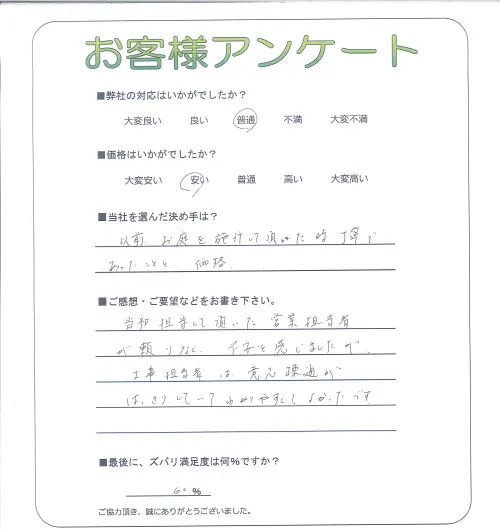 お客様アンケート
■弊社の対応はいかがでしたか？
大変良い 良い 普通 不満 大変不満
■価格はいかがでしたか？
大変安い 安い 普通 高い 大変高い
■当社を選んだ決め手は？
以前、お庭を施行して頂いた時丁寧で
あったことと 価格。
■ご感想・ご要望などをお書き下さい。
当初担当して頂いた営業担当者
が頼りなく、不安を感じましたが、
工事担当者は、意志疎通が
はっきりしていてわかりやすくてよかったです
■最後に、ズバリ満足度は何%ですか？
60 %
ご協力頂き、誠にありがとうございました。